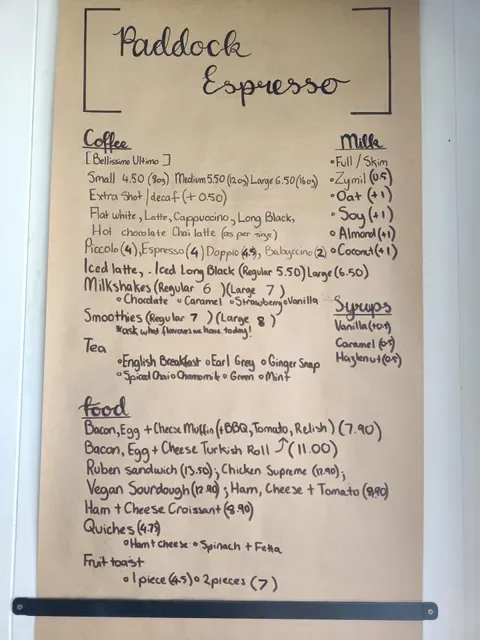 Paddock
Espresso
Coffee
[Bellissimo Ultimo]
Small 4.50 (8oz) Medium 5.50 (12oz) Large 6.50 (16oz)
Extra Shot/decaf (+0.50)
Flat white, Latte, Cappuccino, Long Black,
Hot chocolate Chai latte (as per size)
Piccolo (4), Espresso (4) Doppio (4.5), Babyccino (2)
Iced latte, . Iced Long Black (Regular 5.50) Large (6.50)
Milkshakes (Regular 6 ) (Large 7 )
Chocolate Caramel Strawberry Vanilla
Smoothies (Regular 7 ) (Large 8 )
*ask what flavours we have today!
Tea
English Breakfast Earl Grey Ginger Snap
Spiced Chai Chamomile Green Mint
Milk
Full / Skim
Zymil (0.5)
Oat (+1)
Soy (+1)
Almond (+1)
Coconut (+1)
Syrups
Vanilla (+0.5)
Caramel (0.5)
Hazlenut (0.5)
Food
Bacon, Egg + Cheese Muffin (+BBQ, Tomato, Relish) (7.90)
Bacon, Egg + Cheese Turkish Roll (11.00)
Ruben sandwich (13.50); Chicken Supreme (12.90);
Vegan Sourdough (12.90); Ham, Cheese + Tomato (8.90)
Ham + Cheese Croissant (8.90)
Quiches (4.75)
Ham + Cheese Spinach + Fetta
Fruit toast
1 piece (4.5) 2 pieces (7)